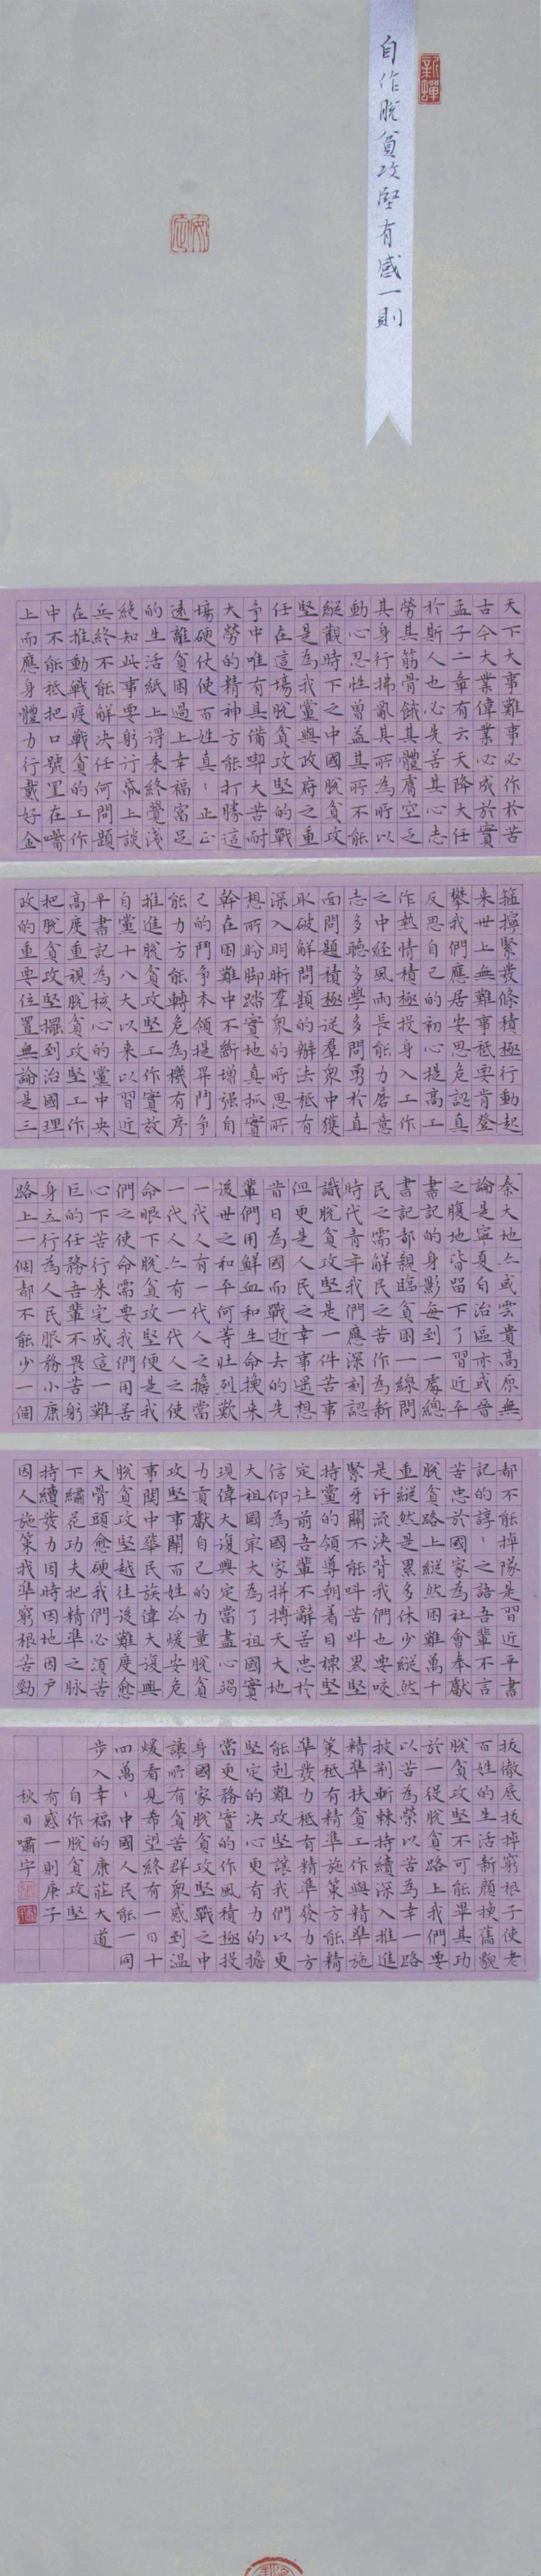 自作脫貧攻堅有感一則
天下大事難事必作於苦
古今大業偉業必成於實
孟子二章有云天降大任
於斯人也必先苦其心志
勞其筋骨餓其體膚空乏
其身行拂亂其所為所以
動心忍性曾益其所不能
縱觀時下之中國脫貧攻
堅是為我黨與政府之重
任在這場脫貧攻堅的戰
爭中唯有具備喫大苦耐
大勞的精神方能打勝這
場硬仗使百姓真丶正正
遠離貧困過上幸福富足
的生活紙上得来終覺淺
絕知此事要躬行紙上談
兵終不能解決任何問題
在推動戰疫戰貧的工作
中不能祗把口號置在嘴
上而應身體力行戴好金
箍擰緊發條積極行動起
来世上無難事祗要肯登
攀我們應居安思危認真
反思自己的初心提高工
作熱情積極投身入工作
之中經風雨長能力磨意
志多聽多學多問勇於直
面問題積極從羣衆中獲
取破解問題的辦法祗有
深入明晰羣衆的所思所
想所盼脚踏實地真抓實
幹在困難中不斷增强自
己的鬥爭本領提昇鬥爭
能力方能轉危為機有序
推進脫貧攻堅工作實放
自黨十八大以来以習近
平書記為核心的黨中央
高度重視脫貧攻堅工作
把脫貧攻堅擺到治國理
政的重要位置無論是三
秦大地亦或雲貴高原無
論是寧夏自治區亦或晉
之腹地皆留下了習近平
書記的身影每到一處總
書記都親臨貧困一線問
民之需解民之苦作為新
時代青年我們應深刻認
識脫貧攻堅是一件苦事
但更是人民之幸事遥想
昔日為國而戰逝去的先
輩們用鮮血和生命換来
後世之和平何等壯烈歎
一代人有一代人之擔當
一代人亦有一代人之使
命眼下脫貧攻堅便是我
們之使命需要我們用苦
心下苦行来完成這一難
巨的任務吾輩不畏苦躬
身立行為人民服務小康
路上一個都不能少一個
都不能掉隊是習近平書
記的諄丶之語吾輩不言
苦忠於國家為社會奉獻
脫貧路上縱然困難萬千
重縱然是累多休少縱然
是汗流浹背我們也要咬
緊牙關不能叫苦叫累堅
持黨的領導朝着目標堅
定注前吾輩不辭苦忠於
信仰為國家拼搏天大地
大祖國家大為了祖國實
現偉大復興定當盡心竭
力貢獻自己的力量脫貧
攻堅事關百姓冷暖安危
事關中華民族偉大復興
脫貧攻堅越往後難度愈
大骨頭愈硬我們必須苦
下繡花功夫把精準之脉
持續發力因時因地因户
因人施策找準窮根苦勁
拔徹底拔掉窮根子使老
百姓的生活新顔換舊貌
脫貧攻堅不可能畢其功
於一役脫貧路上我們要
以苦為榮以苦為幸一路
披荆斬棘持續深入推進
精準扶貧工作與精準施
策祗有精準施策方能精
準發力祗有精準發力方
能剋難攻堅讓我們以更
堅定的决心更有力的擔
當更務實的作風積極投
身國家脫貧攻堅戰之中
讓所有貧苦群衆感到温
煖看見希望終有一日十
四萬丶中國人民能一同
步入幸福的康莊大道
自作脫貧攻堅
有感一則庚子
秋日嘯宇